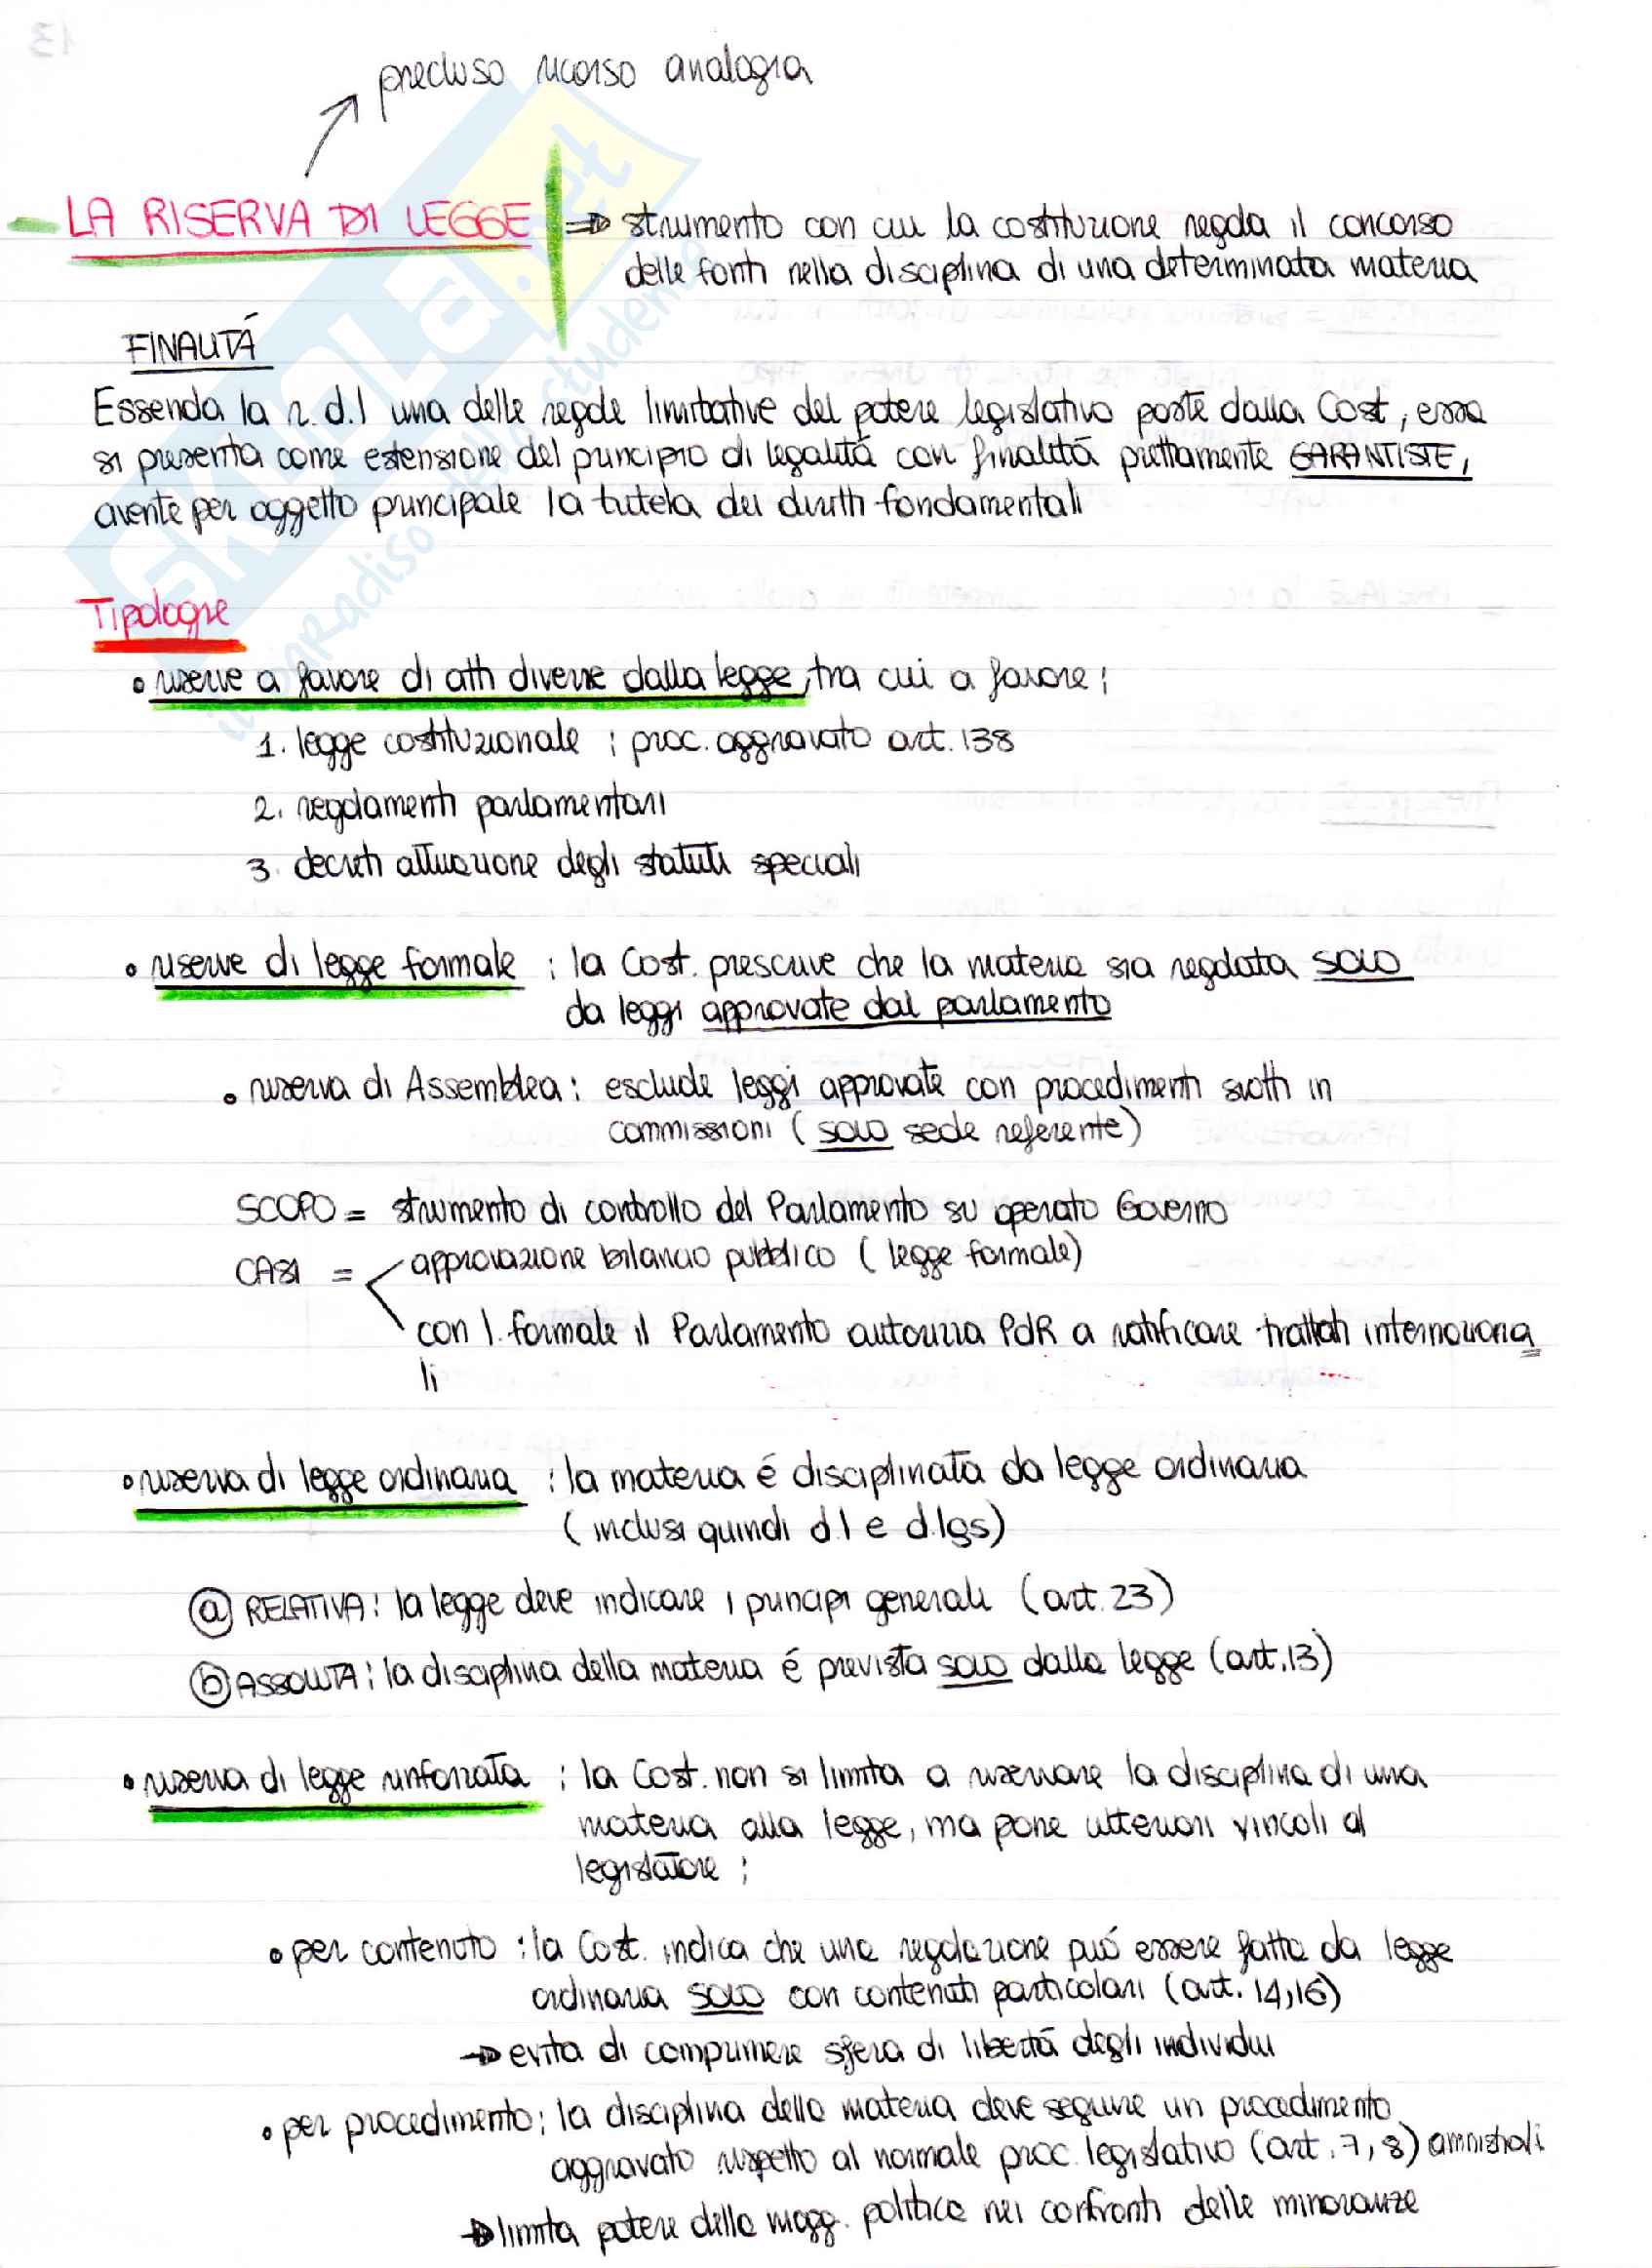 precluso ricorso analogia
LA RISERVA DI LEGGE => strumento con cui la costituzione regola il concorso
delle fonti nella disciplina di una determinata materia
FINALITÁ
Essendo la r.d.l una delle regole limitative del potere legislativo poste dalla Cost, essa
si presenta come estensione del principio di legalitá con finalitá prettamente GARANTISTE,
avente per oggetto principale la tutela dei diritti fondamentali
Tipologie
• riserve a favore di atti diversi dalla legge, tra cui a favore:
1. legge costituzionale : proc. aggravato art. 138
2. regolamenti parlamentari
3. decreti attuazione degli statuti speciali
• riserve di legge formale : la Cost. prescrive che la materia sia regolata SOLO
da leggi approvate dal parlamento
• riserva di Assemblea: esclude leggi approvate con procedimenti svolti in
commissioni (SOLO sede referente)
SCOPO = strumento di controllo del Parlamento su operato Governo
CASI = approvazione bilancio pubblico (legge formale)
con l. formale il Parlamento autorizza PdR a ratificare trattati internaziona
li
• riserva di legge ordinaria : la materia é disciplinata da legge ordinaria
(inclusi quindi d.l e d.lgs)
ⓐ RELATIVA: la legge deve indicare i principi generali (art. 23)
ⓑ ASSOLUTA: la disciplina della materia é prevista SOLO dalla legge (art. 13)
• riserva di legge rinforzata : la Cost. non si limita a riservare la disciplina di una
materia alla legge, ma pone ulteriori vincoli al
legislatore :
• per contenuto : la Cost. indica che una regolazione puó essere fatta da legge
ordinaria SOLO con contenuti particolari (art. 14,16)
→ evita di comprimere sfera di libertá degli individui
• per procedimento: la disciplina della materia deve seguire un procedimento
aggravato rispetto al normale proc. legislativo (art. 7, 8) amnistia
→ limita potere della magg. politica nei confronti delle minoranze
SKUOLA.net
il paradiso dello studente
13